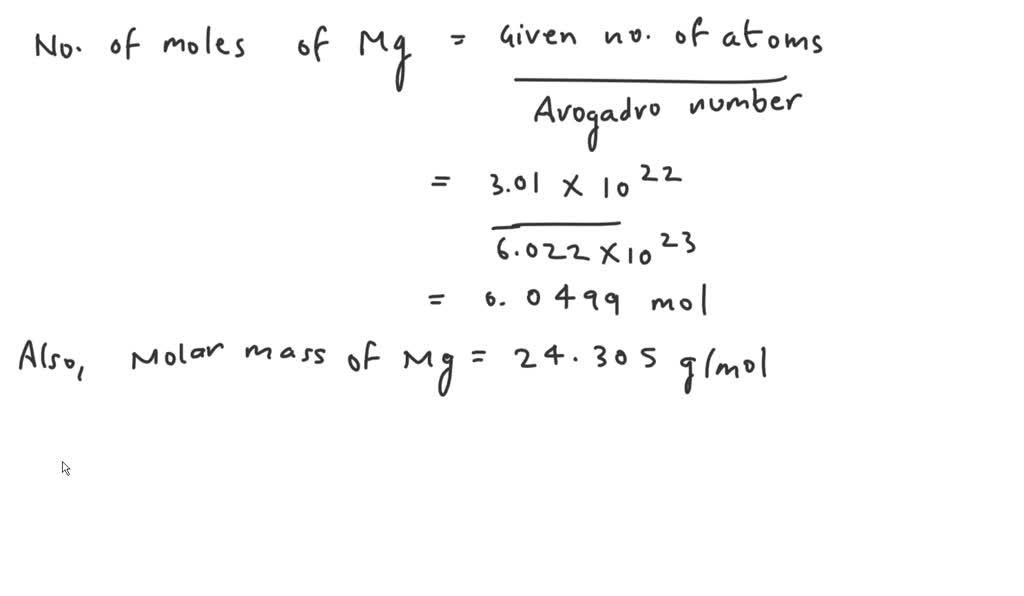 No. of moles of Mg = Given no. of atoms
Avogadro number
= 3.01 × 10²²
6.022 × 10²³
= 0.0499 mol
Also, Molar mass of Mg = 24.305 g/mol